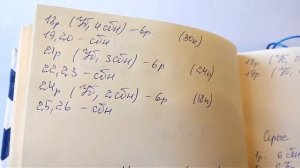 18р (Уб, 4сбн) - 6р. (30п)
19,20 - сбн
21р (Уб, 3сбн) - 6р (24п)
22,23 - сбн
24р (Уб, 2сбн) - 6р (18п)
25,26 - сбн
18р
19р
Серые
1р. 6 сбн